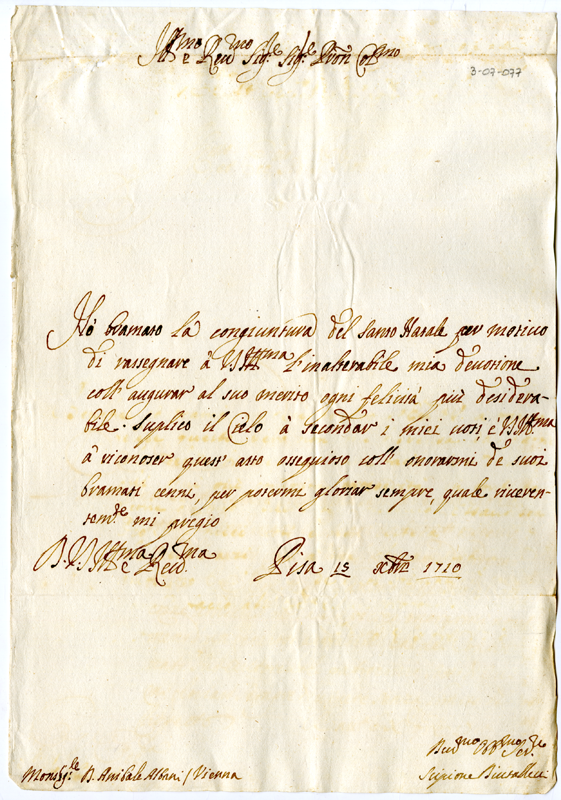 Ill.mo e Rev.mo Sig.re Sig.re Pron Col.mo
3-07-077
Hò bramato la congiuntura del Santo Natale per motiuo
di rassegnare à V.S. Ill.ma l'inalterabile mia deuotione
coll'augurar al suo merito ogni felicità più desidera-
bile. Suplico il Cielo à secondar i miei uoti, e V.S. Ill.ma
à riconoser quest'atto ossequioso coll'onorarmi de suoi
bramati cenni, per potermi gloriar sempre, quale riueren-
tem.te mi pregio
D.V.S. Ill.ma e Reu.ma Pisa 15 Xbre 1710
Monsig.re D. Anibale Albani / Vienna
Obb.mo Ser.re
Scipione